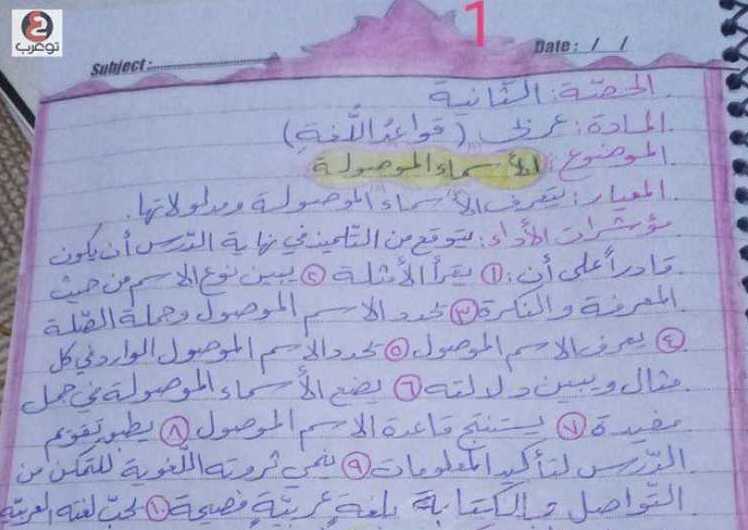 توعرب
1
Subject: Date: / /
الحصّة: الثّانية
المادة: عربي (قواعدُ اللُّغةِ)
الموضوع: الأسماء الموصولة
المعيار: يتعرف الأسماء الموصولة ومدلولاتها.
مؤشرات الأداء: يتوقع من التلميذ في نهاية الدّرس أن يكون
قادراً على أن: ① يقرأ الأمثلة ② يبين نوع الاسم من حيث
المعرفة والنكرة ③ يحدد الاسم الموصول وجملة الصّلة
④ يعرف الاسم الموصول ⑤ يحدد الاسم الموصول الوارد في كل
مثال ويبين دلالته ⑥ يضع الأسماء الموصولة في جمل
مفيدة ⑦ يستنتج قاعدة الاسم الموصول ⑧ يطبق تقويم
الدّرس لتأكيد المعلومات ⑨ ينمي ثروته اللّغوية للتمكن من
التّواصل والكتابة بلغةٍ عربيّةٍ فصيحة ⑩ يحبّ لغته العربيّة